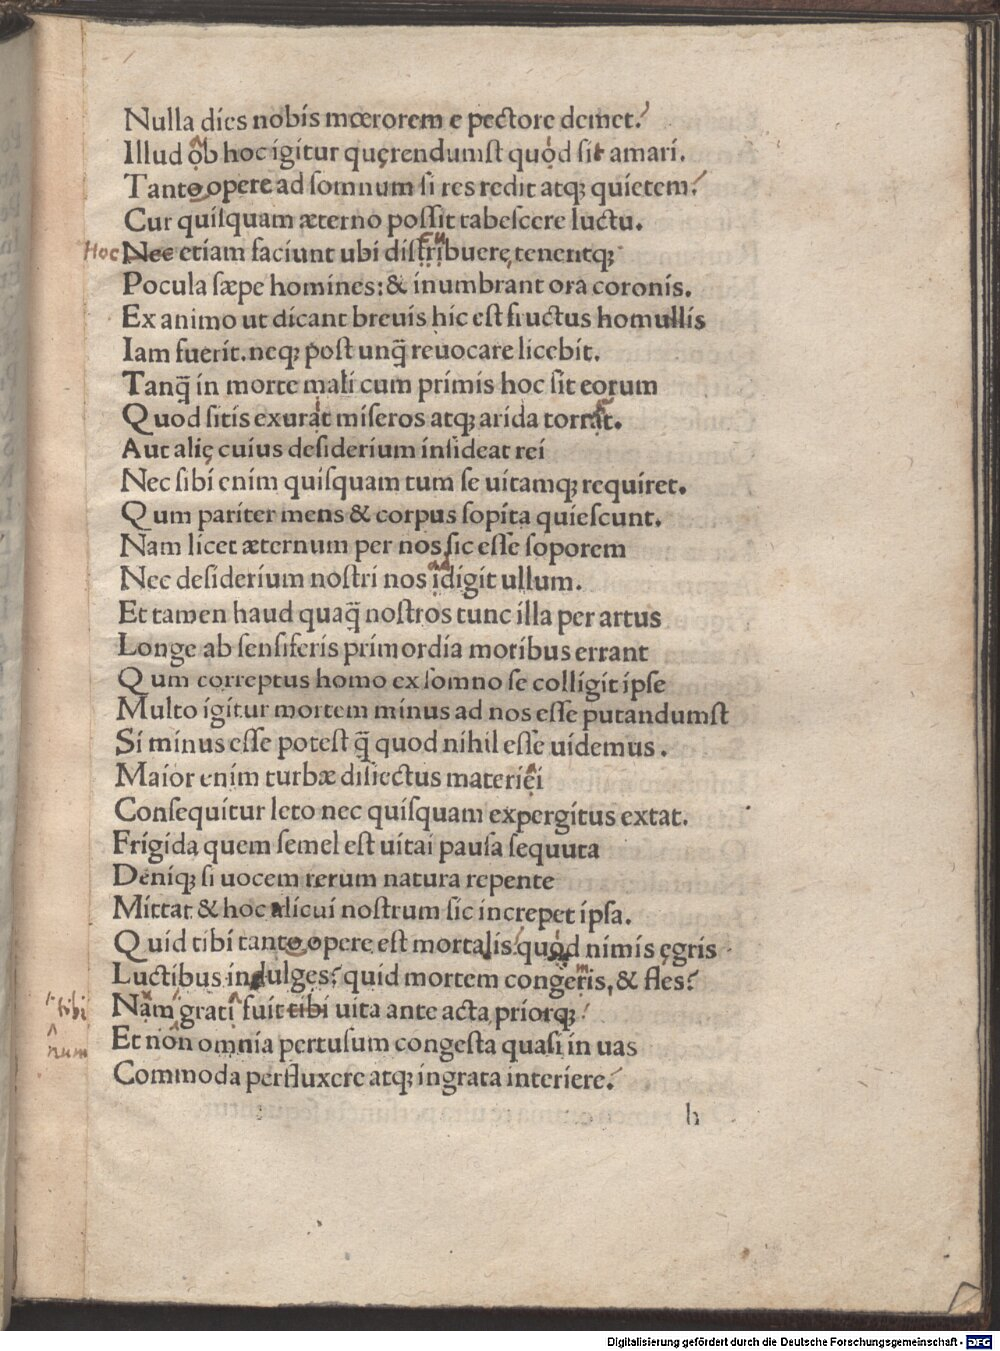 Nulla dies nobis mœrorem e pectore demet.
Illud ob hoc igitur quęrendumst quod sit amari.
Tanto opere ad somnum si res redit atqꝫ quietem.
Cur quisquam æterno possit tabescere luctu.
Hoc Nec etiam faciunt ubi distribuere, tenentqꝫ
Pocula sæpe homines: & inumbrant ora coronis.
Ex animo ut dicant breuis hic est fructus homullis
Iam fuerit. neqꝫ post unq̃ reuocare licebit.
Tanq̃ in morte mali cum primis hoc sit eorum
Quod sitis exurat miseros atqꝫ arida torrat.
Aut alię cuius desiderium insideat rei
Nec sibi enim quisquam tum se uitamqꝫ requiret.
Qum pariter mens & corpus sopita quiescunt.
Nam licet æternum per nos sic esse soporem
Nec desiderium nostri nos idigit ullum.
Et tamen haud quaq̃ nostros tunc illa per artus
Longe ab sensiferis primordia motibus errant
Qum correptus homo ex somno se colligit ipse
Multo igitur mortem minus ad nos esse putandumst
Si minus esse potest q̃ quod nihil esse uidemus.
Maior enim turbæ disiectus materiei
Consequitur leto nec quisquam expergitus extat.
Frigida quem semel est uitai pausa sequuta
Deniqꝫ si uocem rerum natura repente
Mittat & hoc alicui nostrum sic increpet ipsa.
Quid tibi tanto opere est mortalis quod nimis ęgris
Luctibus indulges? quid mortem congeris, & fles?
tibi Nam grati fuit tibi uita ante acta priorqꝫ
num Et non omnia pertusum congesta quasi in uas
Commoda perfluxere atqꝫ ingrata interiere.
h
Digitalisierung gefördert durch die Deutsche Forschungsgemeinschaft - DFG